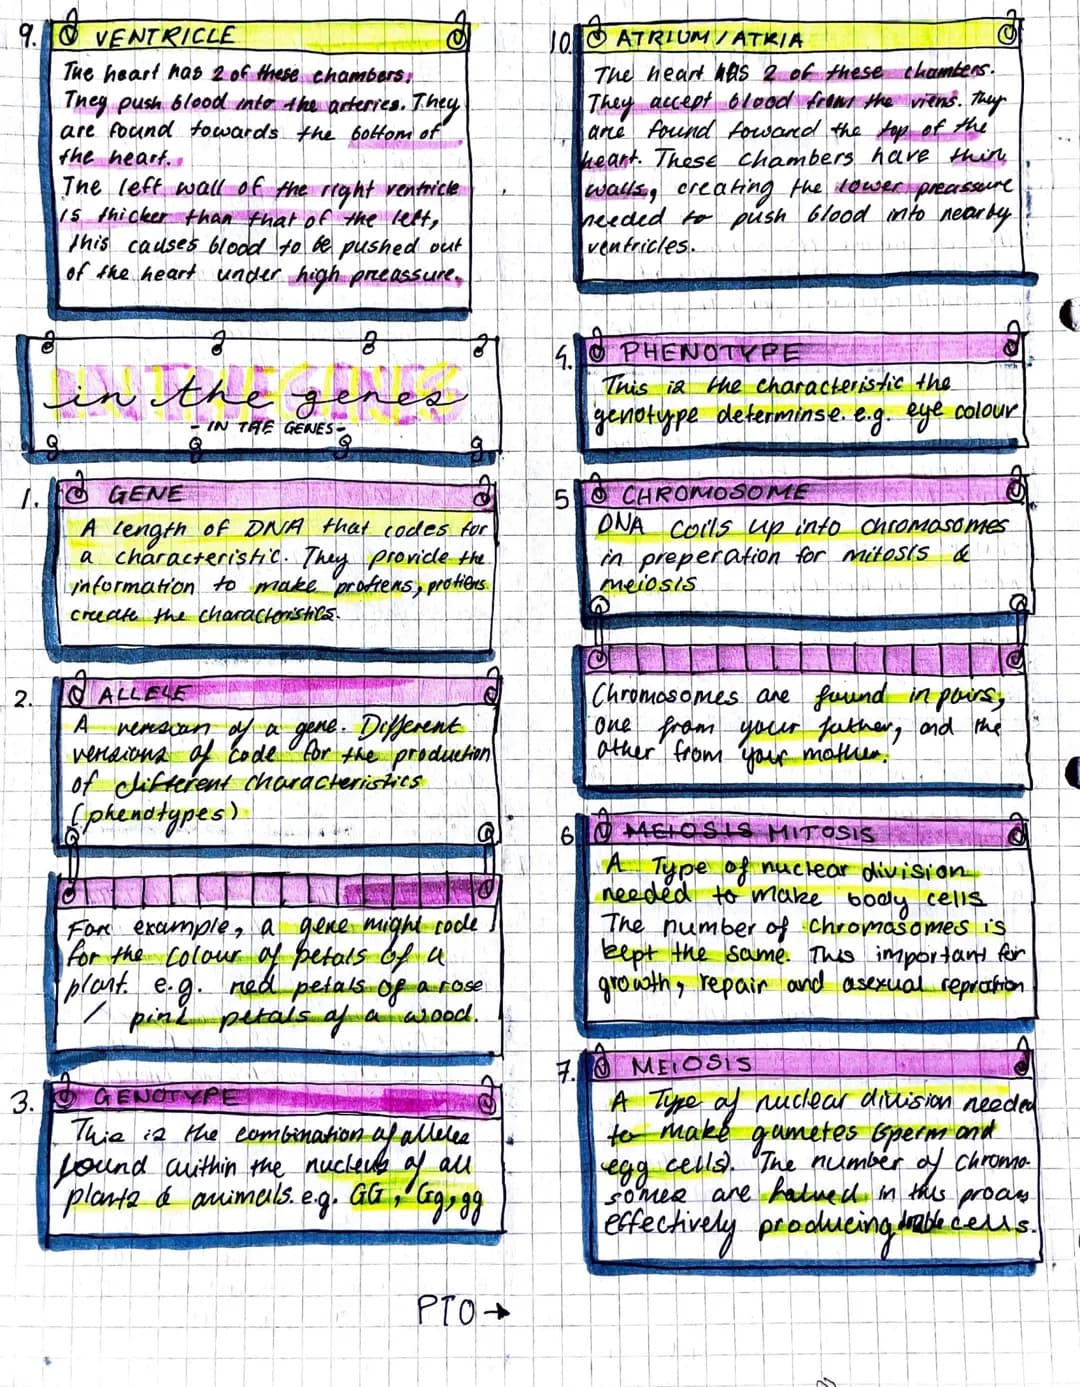 9. VENTRICLE
The heart has 2 of these chambers.
They push blood into the arteries. They
are found towards the bottom of
the heart.
The left wall of the right ventricle
is thicker than that of the left,
this causes blood to be pushed out
of the heart under high preassure.
10. ATRIUM / ATRIA
The heart has 2 of these chambers.
They accept blood from the viens. They
are found toward the top of the
heart. These chambers have thin
walls, creating the lower preassure
needed to push blood into nearby
ventricles.
in the genes
- IN THE GENES -
1. GENE
A length of DNA that codes for
a characteristic. They provide the
information to make protiens, protiens
create the characteristics.
2. ALLELE
A version of a gene. Different
versions of code for the production
of different characteristics
(phenotypes)
For example, a gene might code
for the colour of petals of a
plant. e.g. red petals of a rose
/ pink petals of a wood.
3. GENOTYPE
This is the combination of alleles
found within the nucleus of all
plants & animals. e.g. GG, Gg, gg
4. PHENOTYPE
This is the characteristic the
genotype determinse. e.g. eye colour
5 CHROMOSOME
DNA coils up into chromosomes
in preperation for mitosis &
meiosis
Chromosomes are found in pairs,
one from your father, and the
other from your mother.
6 MEIOSIS MITOSIS
A Type of nuclear division
needed to make body cells
The number of chromosomes is
kept the same. This important for
growth, repair and asexual
7. MEIOSIS
A Type of nuclear division needed
to make gametes (sperm and
egg cells). The number of chromo-
somes are halved in this
effectively producing cells.
PTO →